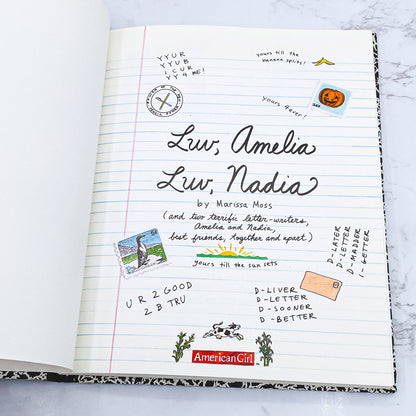 YYUR
YYUB
ICUR
YY 4 ME!
yours till the
banana splits!
yours 4ever!
Luv, Amelia
Luv, Nadia
by Marissa Moss
(and two terrific letter-writers,
Amelia and Nadia,
best friends, together and apart)
yours till the sun sets
D-LATER
D-LETTER
D-MADDER
I-GETTER
U R 2 GOOD
2 B TRU
D-LIVER
D-LETTER
D-SOONER
D-BETTER
American Girl